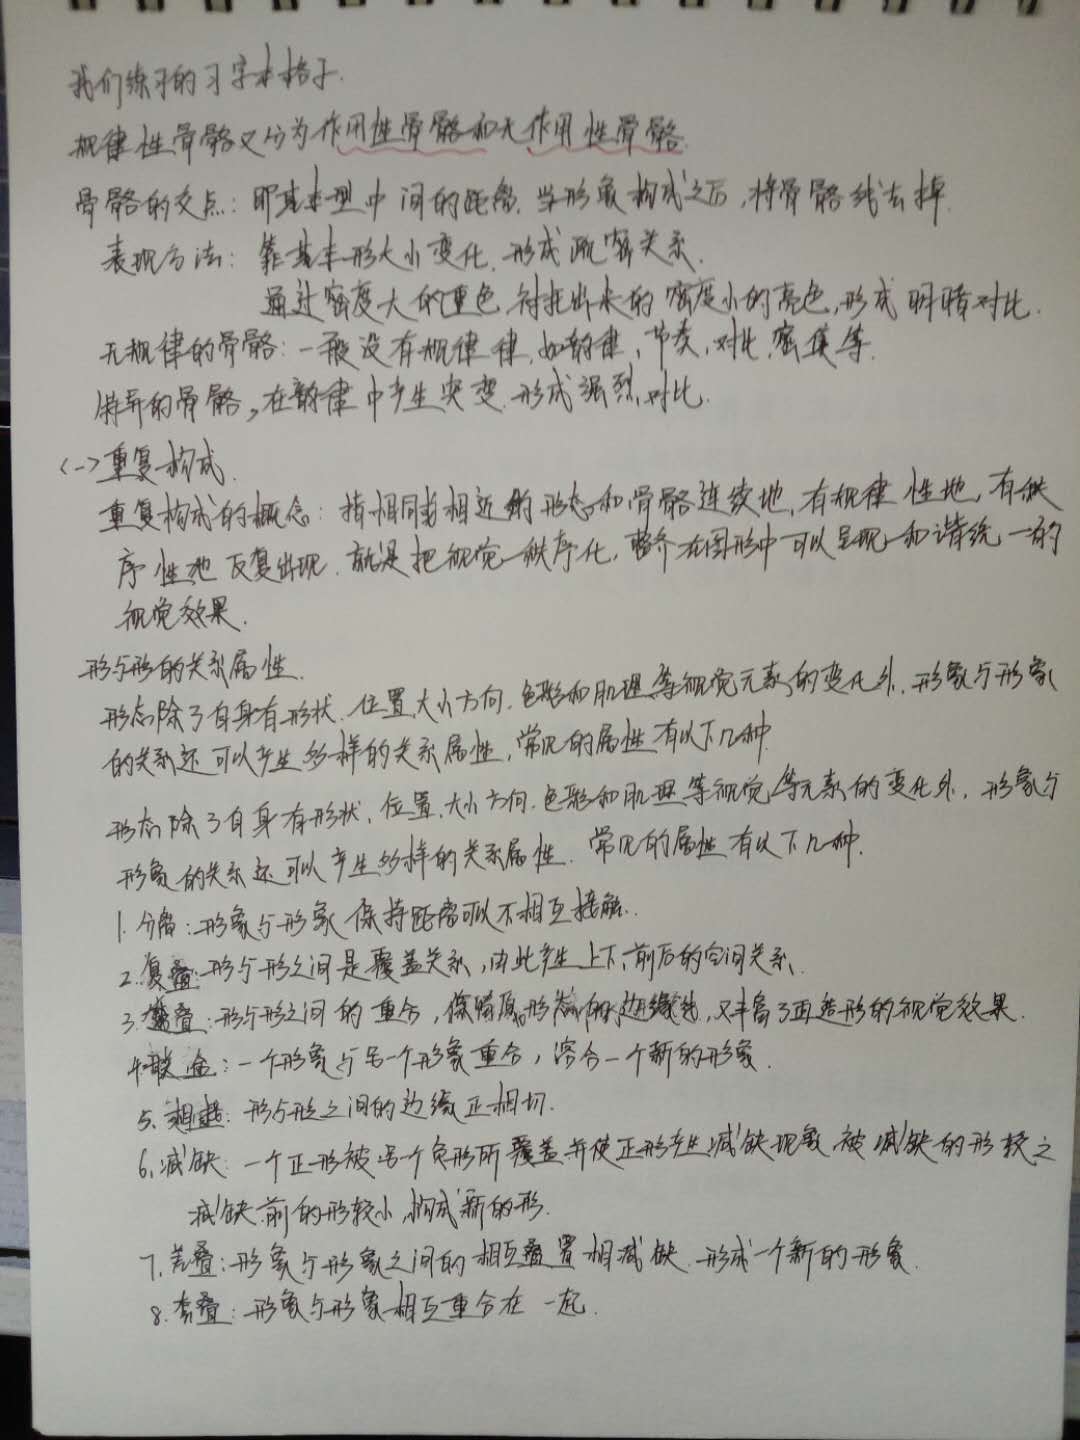 我们练习的习字本格子.
规律性骨骼又分为作用性骨骼和无作用性骨骼.
骨骼的交点：即基本型中间的距离.当形象构成之后,将骨骼线去掉.
表现方法：靠基本形大小变化.形成疏密关系.
通过密度大的重色,衬托出来的密度小的亮色,形成明暗对比.
无规律的骨骼：一般没有规律律,如韵律、节奏,对比,密集等.
特异的骨骼,在韵律中产生突变.形成强烈对比.
<一>重复构成.
重复构成的概念：指相同或相近的形态和骨骼连续地,有规律性地,有秩
序性地反复出现.就是把视觉秩序化,整齐在图形中可以呈现和谐统一的
视觉效果.
形与形的关系属性.
形态除了自身有形状.位置,大小方向.色彩和肌理等视觉元素的变化外.形象与形象
的关系还可以产生多样的关系属性,常见的属性有以下几种.
形态除了自身有形状,位置.大小方向.色彩和肌理等视觉等元素的变化外.形象与
形象的关系还可以产生多样的关系属性.常见的属性有以下几种.
1.分离：形象与形象保持距离可以不相互接触.
2.复叠：形与形之间是覆盖关系,由此产生上下、前后的空间关系.
3.叠：形与形之间的重合,保留原形态的边缘线,又丰富了再造形的视觉效果.
4.联合：一个形象与另一个形象重合,溶合一个新的形象.
5.相接：形与形之间的边缘正相切.
6.减缺：一个正形被另一个负形所覆盖并使正形产生减缺现象.被减缺的形较之
减缺前的形较小,构成新的形.
7.差叠：形象与形象之间的相互叠置相减缺.形成一个新的形象.
8.套叠：形象与形象相互重合在一起.